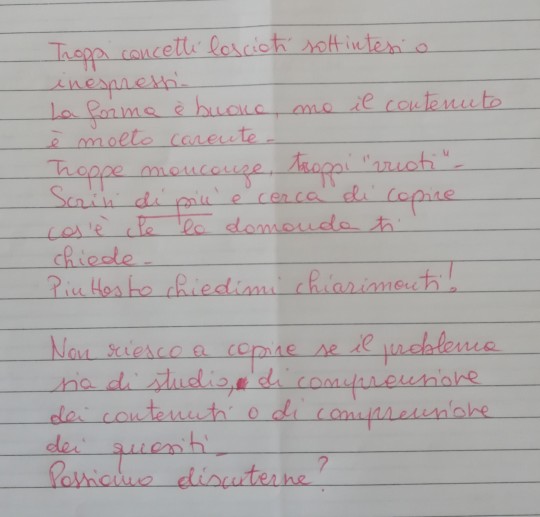 Troppi concetti lasciati sottintesi o
inespressi.
La forma è buona, ma il contenuto
è molto carente.
Troppe mancanze, troppi "vuoti".
Scrivi di più e cerca di capire
cos'è che la domanda ti
chiede.
Piuttosto chiedimi chiarimenti!
Non riesco a capire se il problema
sia di studio, di comprensione
dei contenuti o di comprensione
dei quesiti.
Possiamo discuterne?